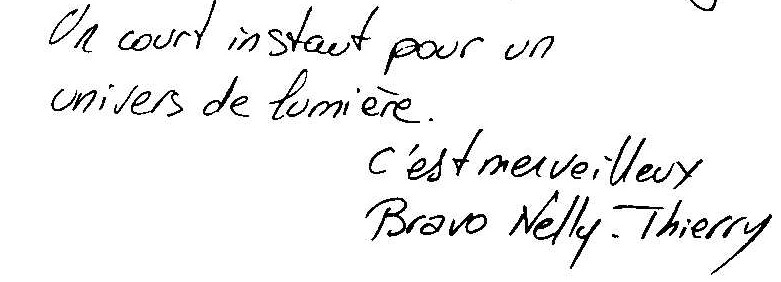 Un court instant pour un
univers de lumière.
C'est merveilleux
Bravo Nelly. Thierry